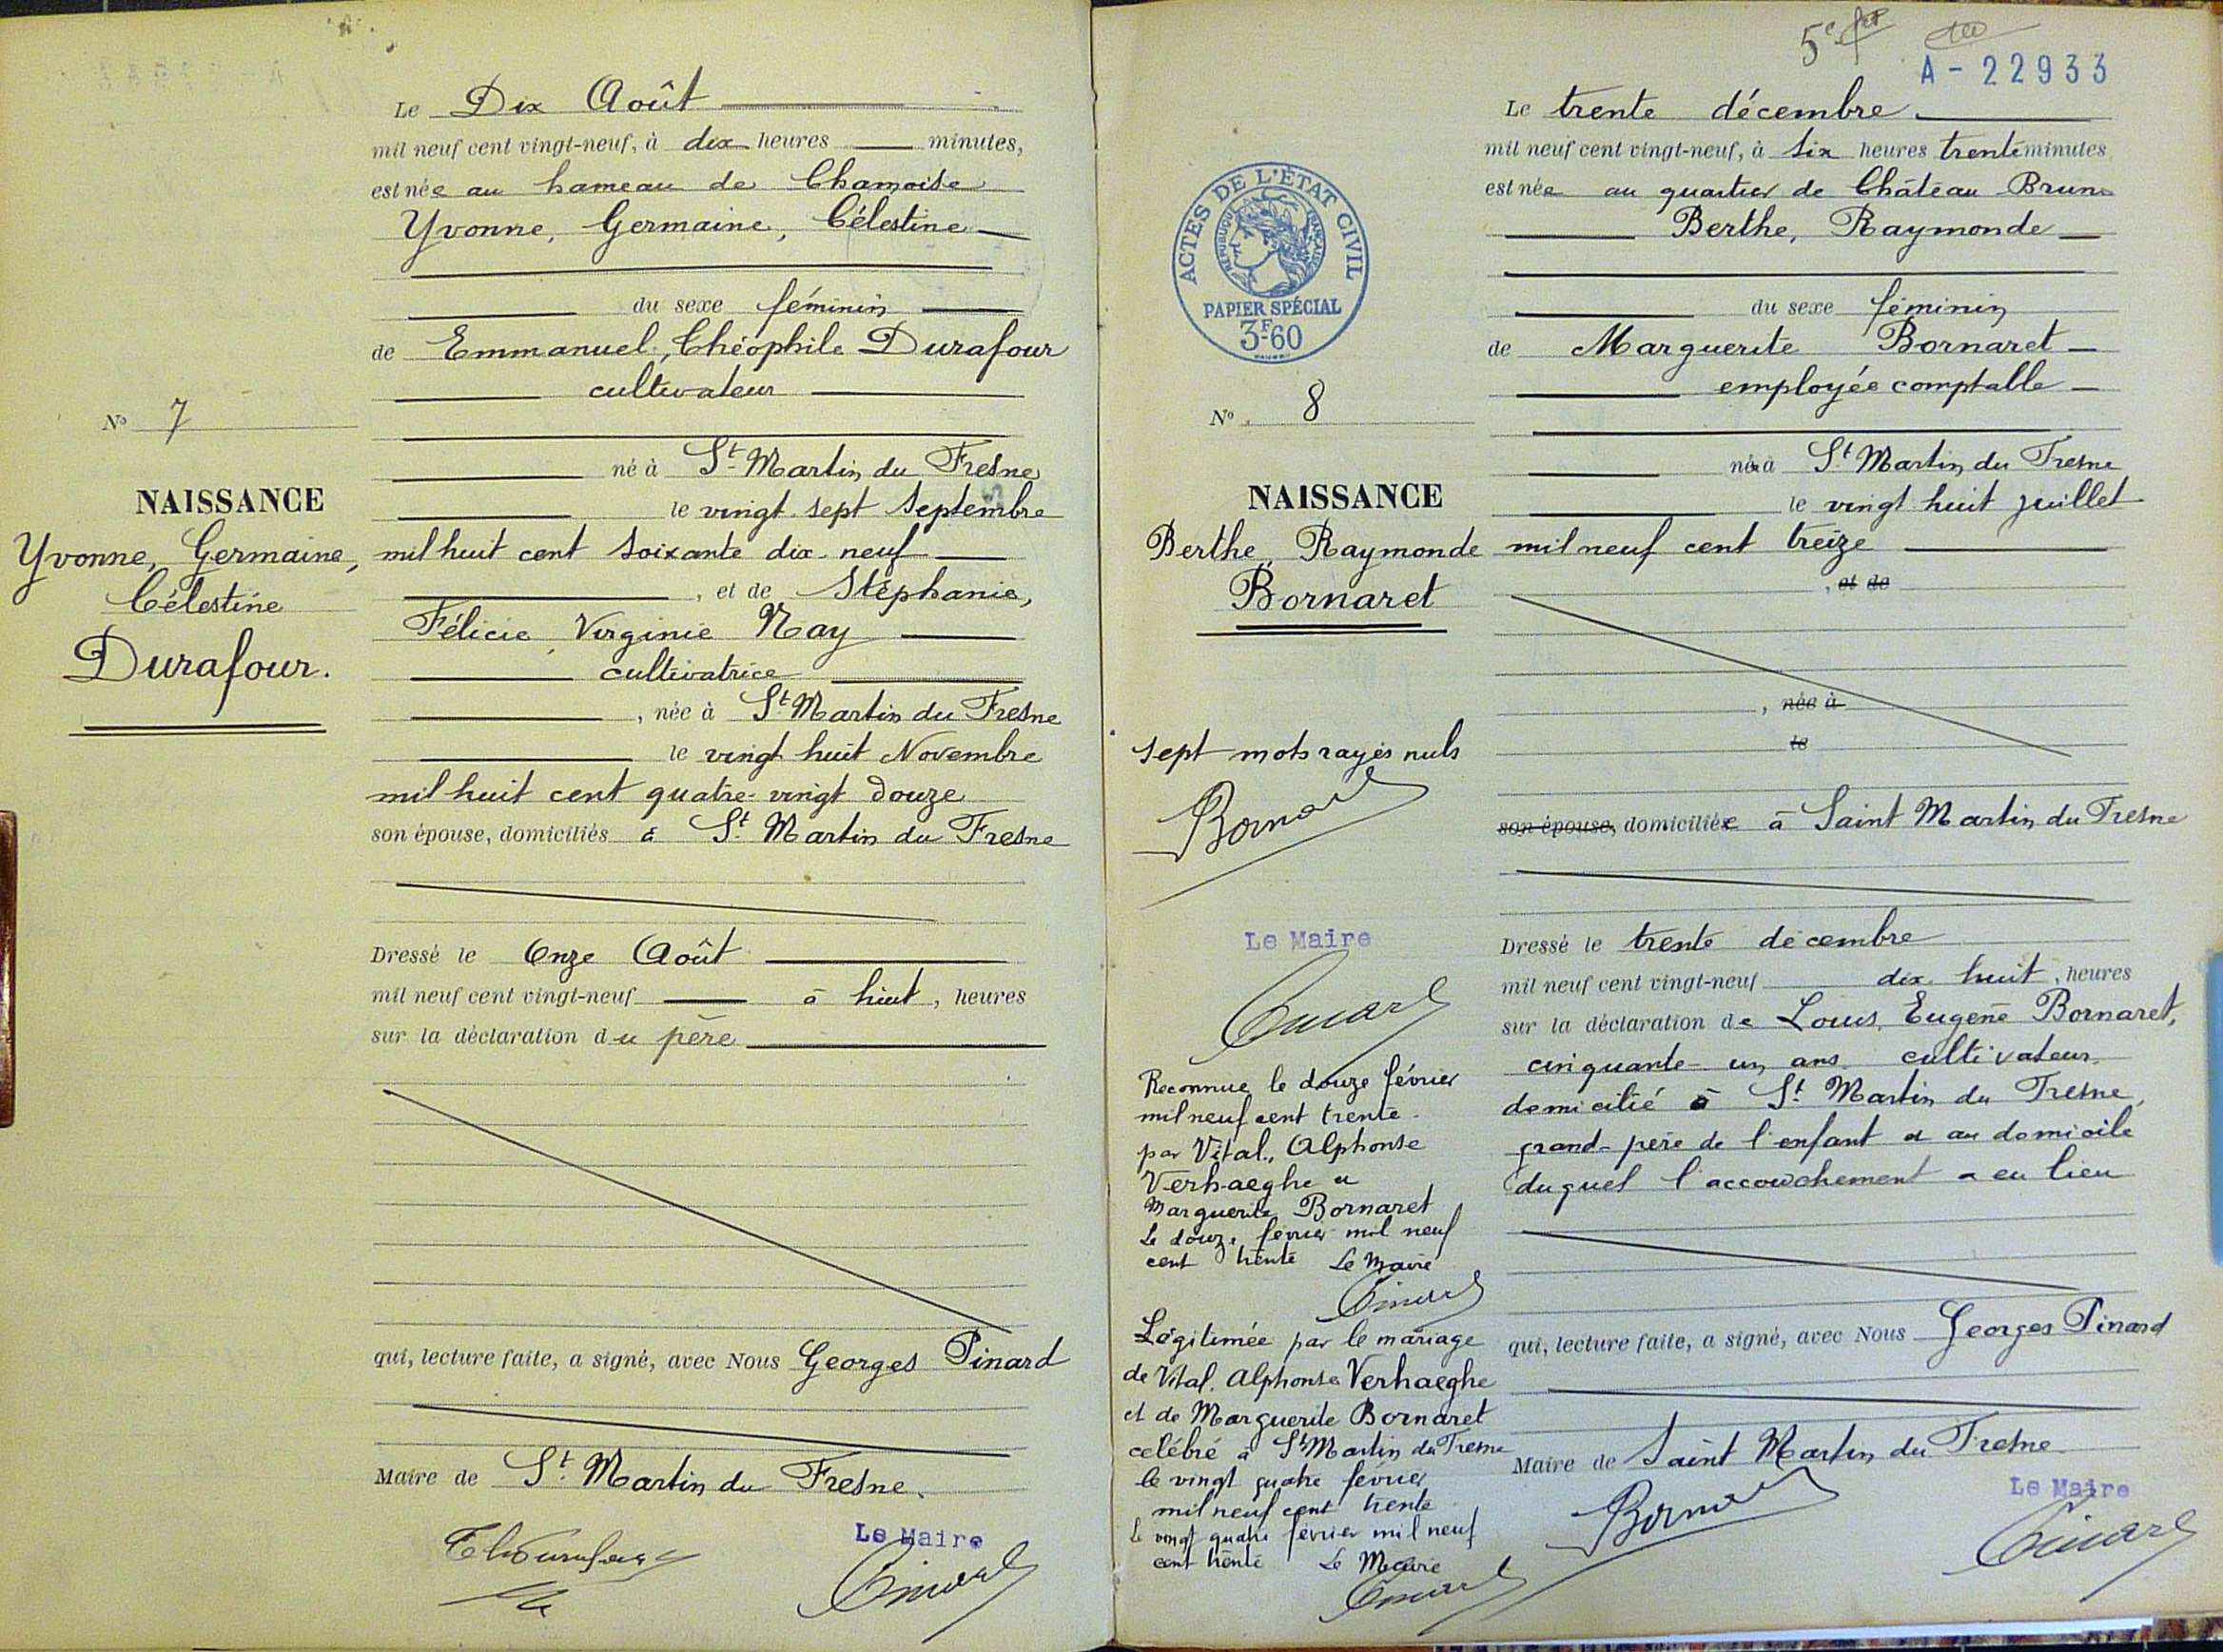 Le Dix Août
mil neuf cent vingt-neuf, à dix heures minutes,
est née au hameau de Chamoise
Yvonne, Germaine, Célestine
du sexe féminin
de Emmanuel, Théophile Durafour
cultivateur
né à St Martin du Fresne
le vingt sept Septembre
mil huit cent soixante dix-neuf
, et de Stéphanie,
Félicie Virginie Nay
cultivatrice
, née à St Martin du Fresne
le vingt huit Novembre
mil huit cent quatre-vingt douze
son épouse, domiciliés à St Martin du Fresne
Dressé le Onze Août
mil neuf cent vingt-neuf à huit, heures
sur la déclaration du père
qui, lecture faite, a signé, avec Nous Georges Pinard
Maire de St Martin du Fresne.
Le Maire
No 7
NAISSANCE
Yvonne, Germaine,
Célestine
Durafour.
5e
A-22933
Le trente décembre
mil neuf cent vingt-neuf, à six heures trente minutes
est née au quartier de Château Brun
Berthe, Raymonde
du sexe féminin
de Marguerite Bornaret
employée comptable
née à St Martin du Fresne
le vingt huit juillet
mil neuf cent treize
, et de
, née à
le
son épouse, domiciliée à Saint Martin du Fresne
Dressé le trente décembre
mil neuf cent vingt-neuf dix huit, heures
sur la déclaration de Louis, Eugène Bornaret,
cinquante-un ans cultivateur
domicilié à St Martin du Fresne,
grand-père de l'enfant et au domicile
duquel l'accouchement a eu lieu
qui, lecture faite, a signé, avec Nous Georges Pinard
Maire de Saint Martin du Fresne
Le Maire
ACTES DE L'ÉTAT CIVIL
RÉPUBLIQUE FRANÇAISE
PAPIER SPÉCIAL
3F60
No 8
NAISSANCE
Berthe, Raymonde
Bornaret
sept mots rayés nuls
Bornaret
Le Maire
Pinard
Reconnue le douze février
mil neuf cent trente
par Vital, Alphonse
Verhaeghe et
Marguerite Bornaret
Le douze février mil neuf
cent trente Le Maire
Pinard
Légitimée par le mariage
de Vital, Alphonse Verhaeghe
et de Marguerite Bornaret
célébré à St Martin du Fresne
le vingt quatre février
mil neuf cent trente
Le vingt quatre février mil neuf
cent trente Le Maire
Pinard